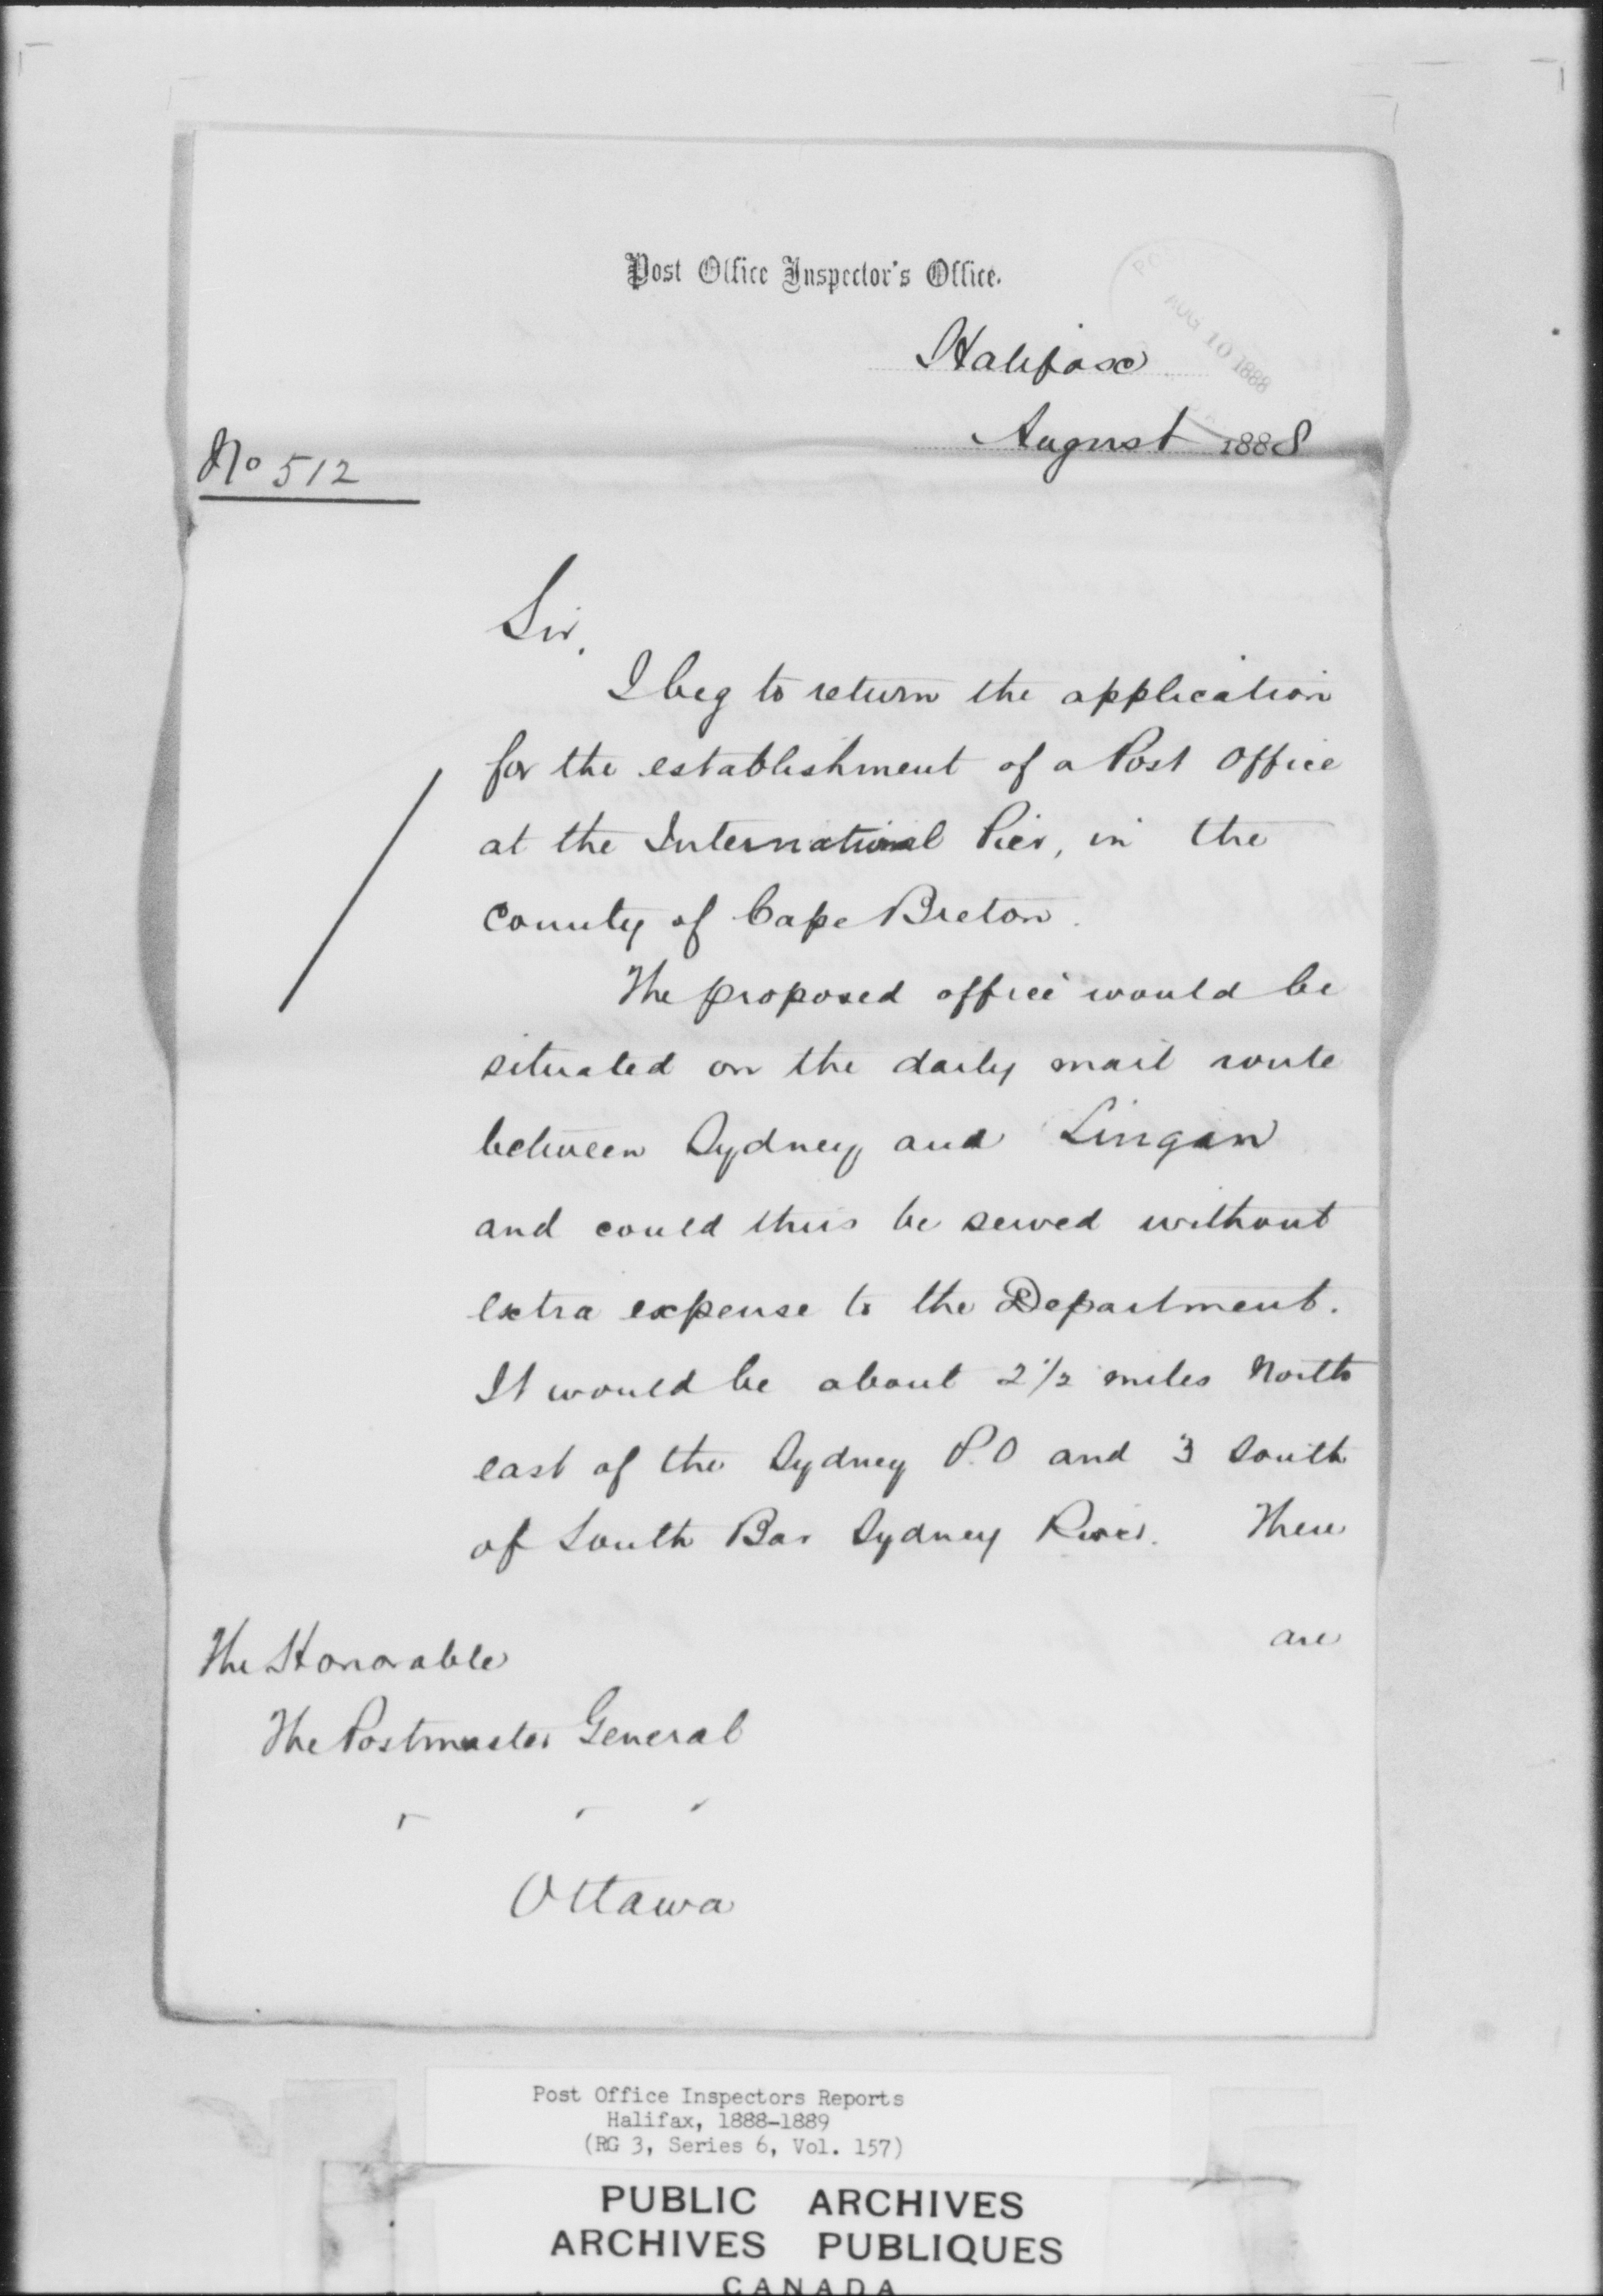 Post Office Inspector's Office.
Halifax
AUG 10 1888
August 1888
No 512
Sir,
I beg to return the application
for the establishment of a Post Office
at the International Pier, in the
County of Cape Breton.
The proposed office would be
situated on the daily mail route
between Sydney and Lingan
and could thus be served without
extra expense to the Department.
It would be about 2 1/2 miles North
east of the Sydney P.O and 3 South
of South Bar Sydney River. There
are
The Honorable
The Postmaster General
Ottawa
Post Office Inspectors Reports
Halifax, 1888-1889
(RG 3, Series 6, Vol. 157)
PUBLIC ARCHIVES
ARCHIVES PUBLIQUES
CANADA